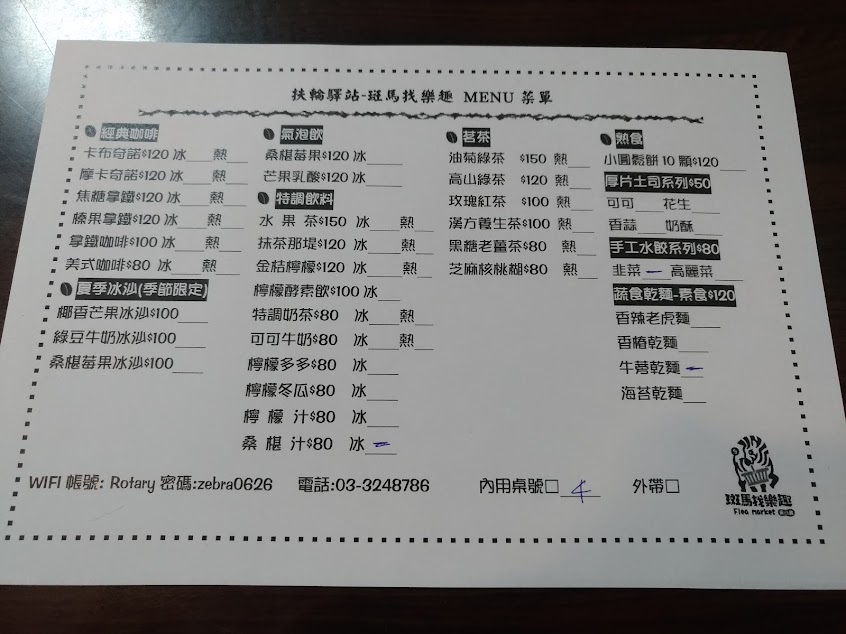 扶輪驛站-斑馬找樂趣 MENU 菜單
經典咖啡
卡布奇諾$120 冰___熱___
摩卡奇諾$120 冰___熱___
焦糖拿鐵$120 冰___熱___
榛果拿鐵$120 冰___熱___
拿鐵咖啡$100 冰___熱___
美式咖啡$80 冰___熱___
夏季冰沙(季節限定)
椰香芒果冰沙$100___
綠豆牛奶冰沙$100___
桑椹莓果冰沙$100___
氣泡飲
桑椹莓果$120 冰___
芒果乳酸$120 冰___
特調飲料
水果茶$150 冰___熱___
抹茶那堤$120 冰___熱___
金桔檸檬$120 冰___熱___
檸檬酵素飲$100 冰___
特調奶茶$80 冰___熱___
可可牛奶$80 冰___熱___
檸檬多多$80 冰___
檸檬冬瓜$80 冰___
檸檬汁$80 冰___
桑椹汁$80 冰___
茗茶
油菊綠茶 $150 熱___
高山綠茶 $120 熱___
玫瑰紅茶 $100 熱___
漢方養生茶$100 熱___
黑糖老薑茶$80 熱___
芝麻核桃糊$80 熱___
熟食
小圓鬆餅 10 顆$120___
厚片土司系列$50
可可___花生___
香蒜___奶酥___
手工水餃系列$80
韭菜___高麗菜___
蔬食乾麵-素食$120
香辣老虎麵___
香椿乾麵___
牛蒡乾麵___
海苔乾麵___
WIFI 帳號: Rotary 密碼:zebra0626 電話:03-3248786 內用桌號□ 4 外帶□
斑馬找樂趣
Flea market